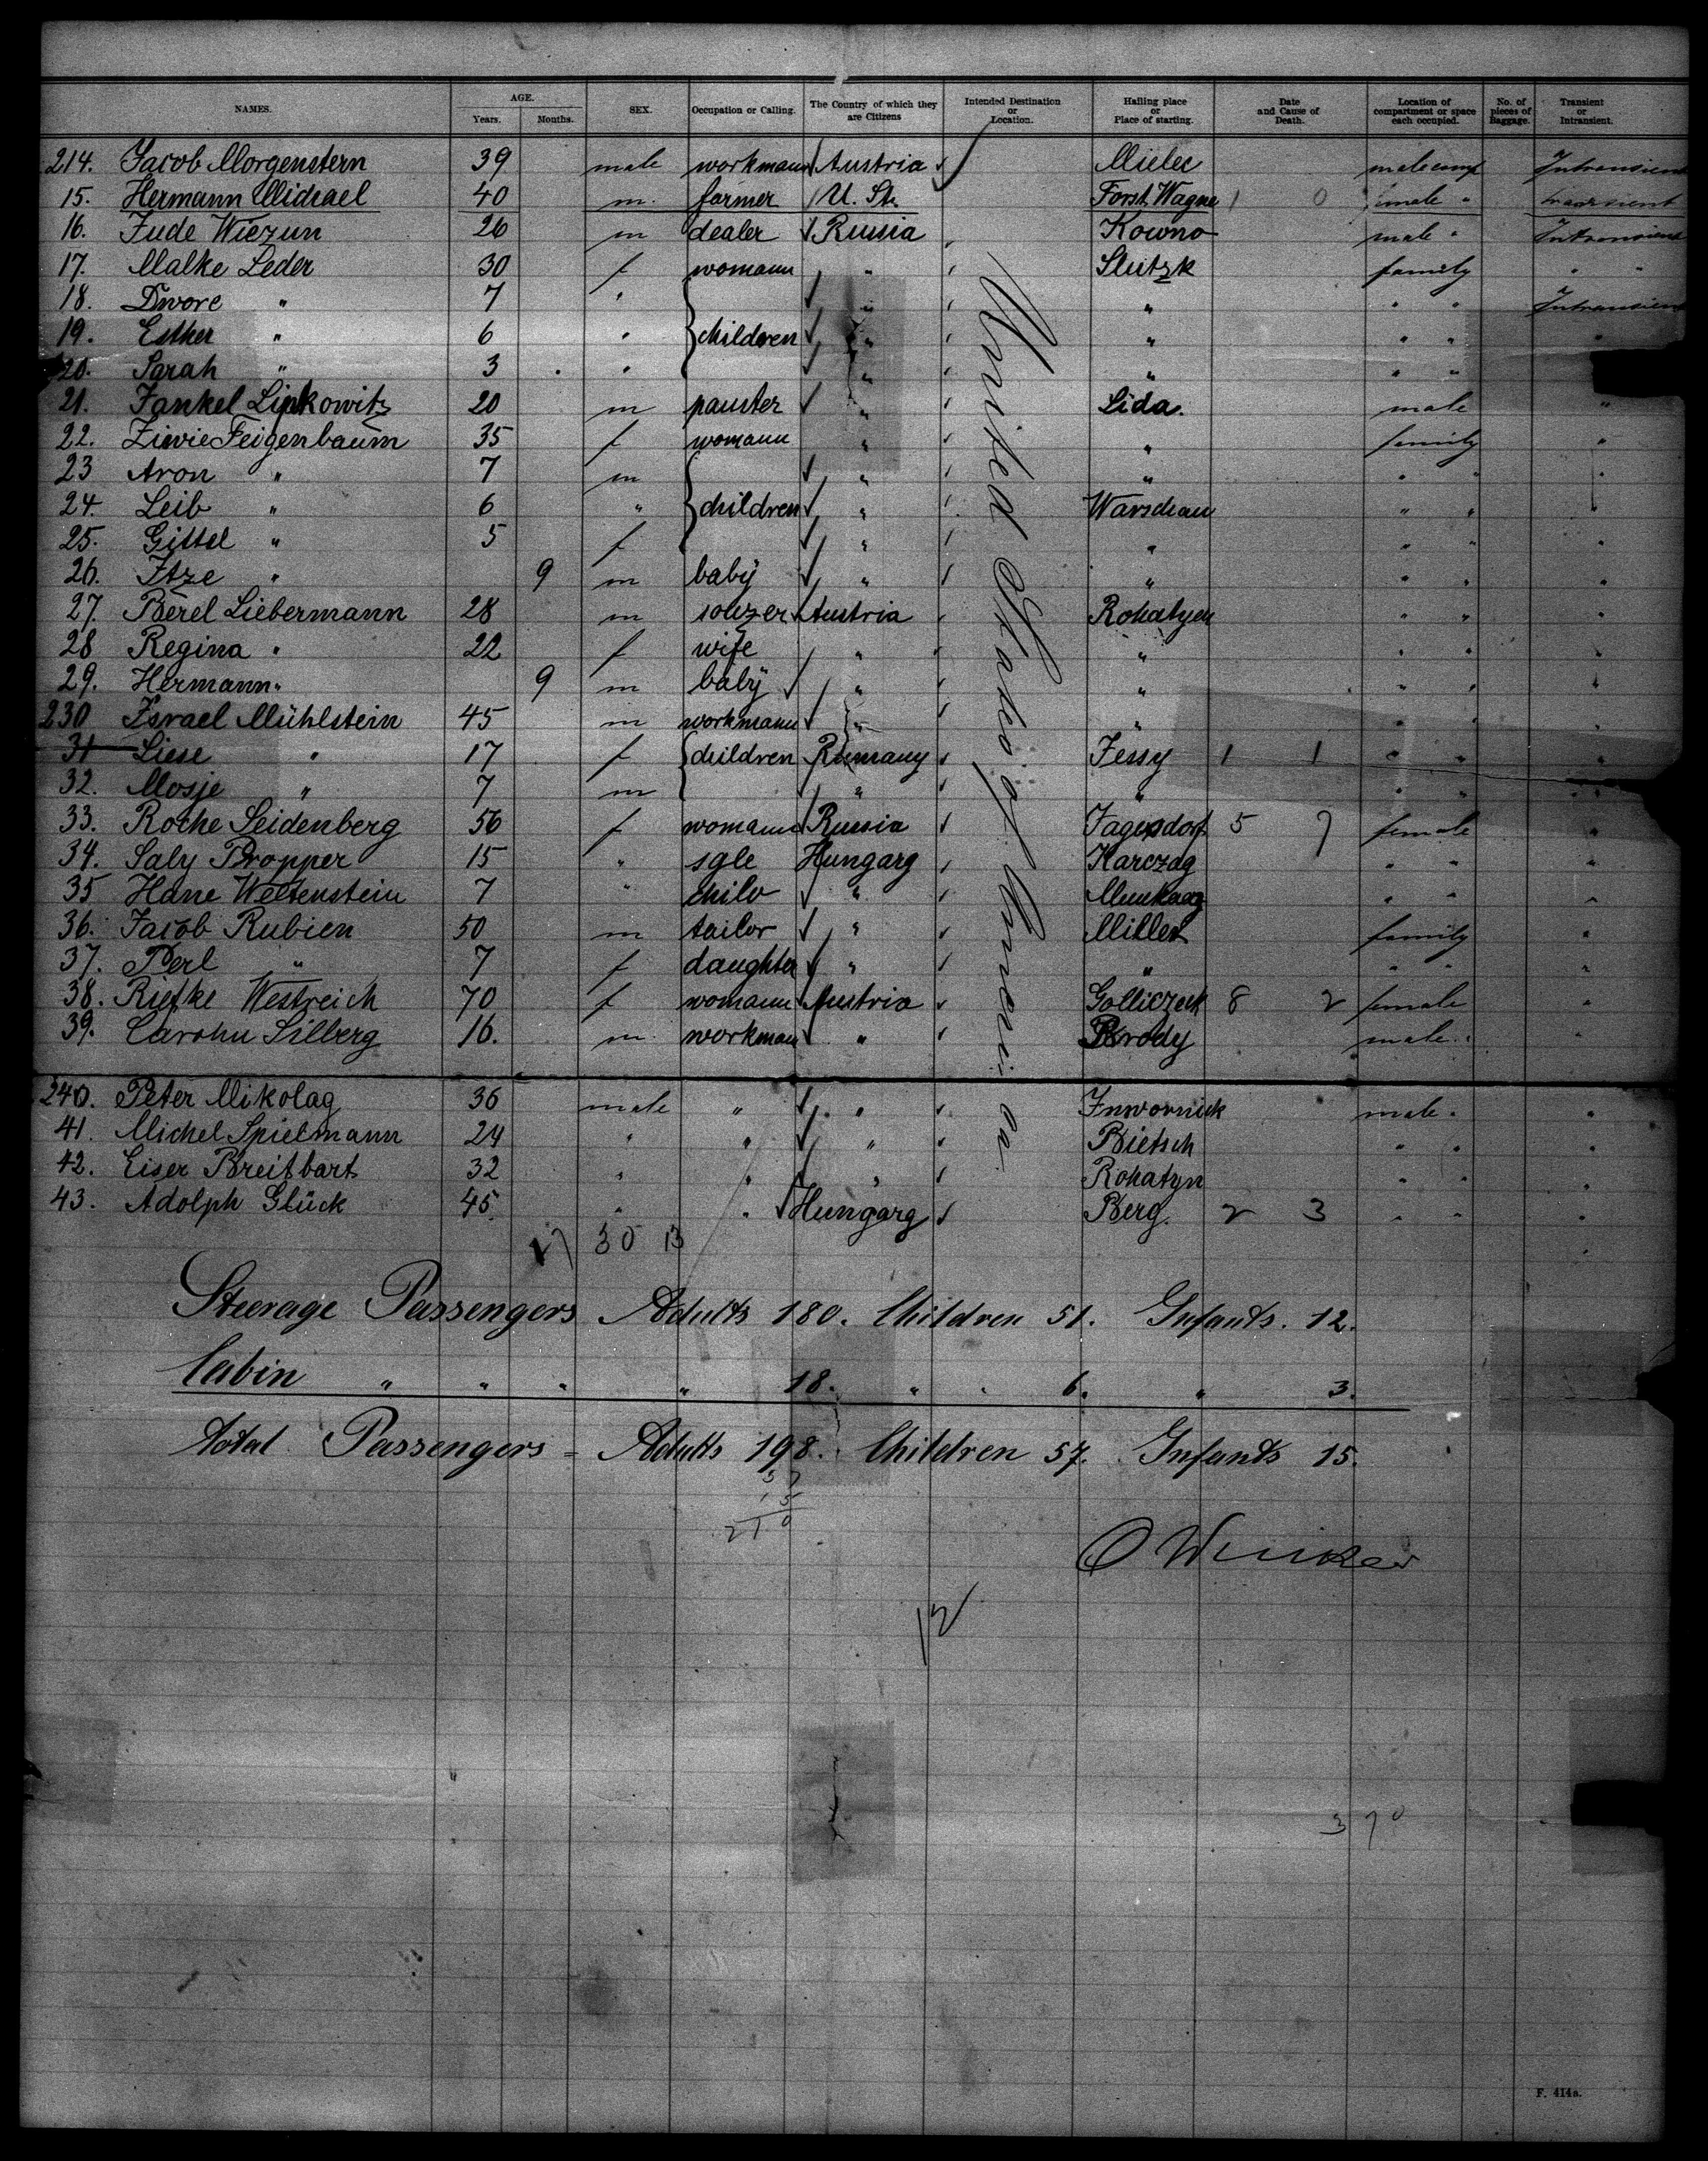 NAMES. AGE. Years. Months. SEX. Occupation or Calling. The Country of which they are Citizens Intended Destination or Location. Hailing place or Place of starting. Date and Cause of Death. Location of compartment or space each occupied. No. of pieces of Baggage. Transient or Intransient.
214. Jacob Morgenstern 39 male workmann Austria Mielec male comp Intransient
15. Hermann Michael 40 m. farmer U. St. Forst. Wagne 1 0 male " transient
16. Jude Wiezun 26 m dealer Russia Kowno male " Intransient
17. Malke Leder 30 f womann " Slutzk family " "
18. Dwore " 7 " " " " " Intransient
19. Esther " 6 " children " " " " "
20. Sarah " 3 " " " " "
21. Jankel Lipkowitz 20 m pauster " Lida. male "
22. Ziwie Feigenbaum 35 f womann " " family "
23 Aron " 7 m " " " " "
24. Leib " 6 " children " Warschau " " "
25. Gittel " 5 f " " " " "
26. Itze " 9 m baby " " " " "
27. Berel Liebermann 28 m Austria Rohatyen " " "
28 Regina " 22 f wife " " " " "
29. Hermann " 9 m baby " " " " "
230 Israel Mühlstein 45 m workmann " " " "
31 Liese " 17 f children Rumany Jessy 1 1 " " "
32. Mosje " 7 m " " " " "
33. Roche Seidenberg 56 f womann Russia Jagersdorf 5 7 female "
34. Saly Propper 15 " sgle Hungarg Karczag " " "
35 Hane Weltenstein 7 " child " Munkacz " " "
36. Jacob Rubien 50 m tailor " Miller family "
37. Perl " 7 f daughter " " " " "
38. Riefke Westreich 70 f womann Austria Golliczek 8 2 female "
39. Carohn Silberg 16. m workman " Brody male "
240. Peter Mikolag 36 male " " male "
41. Michel Spielmann 24 " " " Bietsch " " "
42. Eiser Breitbart 32 " " " Rohatyn " " "
43. Adolph Glück 45 " " Hungarg Berg. 2 3 " " "
United States of America
17 30 13
Steerage Passengers Adults 180. Children 51. Infants. 12.
Cabin " " " " 18. " " 6. " 3.
total Passengers = Adults 198. Children 57. Infants 15.
57
15
270
12
370
F. 414a.